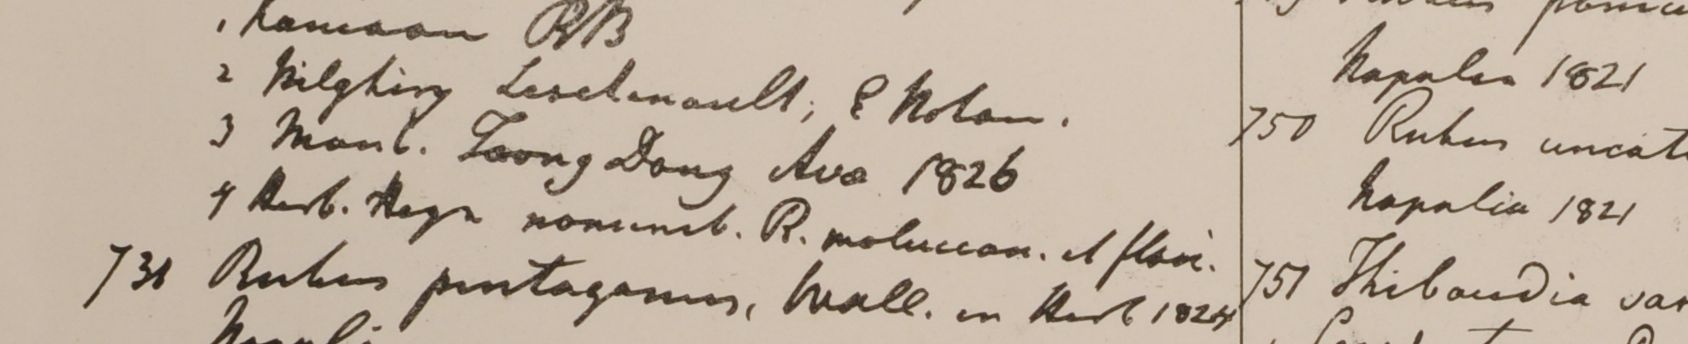 1 Kamaon RB
2 Nilghiry Leschenault; E Noton.
3 Mont. Toong Dong Ava 1826
4 Herb. Heyn nominib. R. moluccan. et flavi.
731 Rubus pentagonus, Wall. in Herb 1824
Napalia 1821
750 Rubus uncat
Napalia 1821
751 Thibaudia var